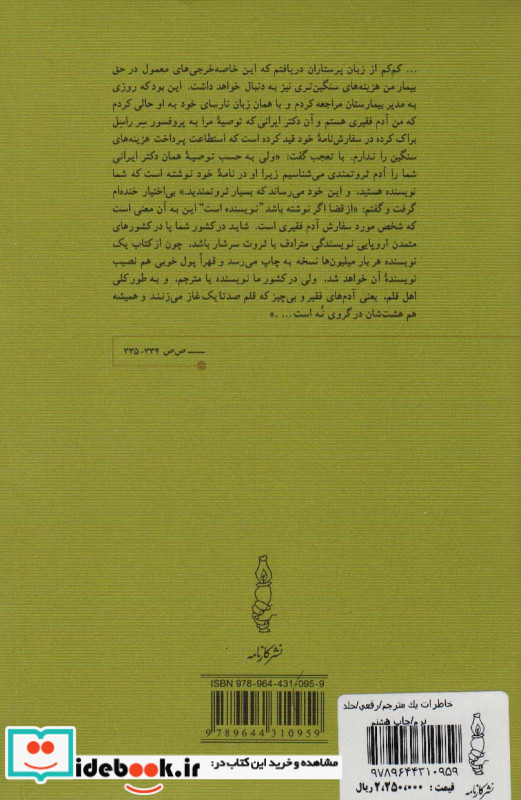 ... کم‌کم از زبان پرستاران دریافتم که این خاصه‌خرجی‌های معمول در حق
بیمار من هزینه‌های سنگین‌تری نیز به دنبال خواهد داشت. این بود که روزی
به مدیر بیمارستان مراجعه کردم و با همان زبان نارسای خود به او حالی کردم
که من آدم فقیری هستم و آن دکتر ایرانی که توصیهٔ مرا به پروفسور سِر راسِل
براک کرده در سفارش‌نامهٔ خود قید کرده است که استطاعت پرداخت هزینه‌های
سنگین را ندارم. با تعجب گفت: «ولی به حسب توصیهٔ همان دکتر ایرانی
شما را آدم ثروتمندی می‌شناسیم زیرا او در نامهٔ خود نوشته است که شما
نویسنده هستید، و این خود می‌رساند که بسیار ثروتمندید.» بی‌اختیار خنده‌ام
گرفت و گفتم: «از قضا اگر نوشته باشد "نویسنده است" این به آن معنی است
که شخص مورد سفارش آدم فقیری است. شاید در کشور شما یا در کشورهای
متمدن اروپایی نویسندگی مترادف با ثروت سرشار باشد، چون از کتاب یک
نویسنده هر بار میلیون‌ها نسخه به چاپ می‌رسد و قهراً پول خوبی هم نصیب
نویسندهٔ آن خواهد شد، ولی در کشور ما نویسنده یا مترجم، و به طور کلی
اهل قلم، یعنی آدم‌های فقیر و بی‌چیز که قلم صدتا یک غاز می‌زنند و همیشه
هم هشت‌شان در گروی نُه است... .»
ص‌ص ۳۳۴-۳۳۵
نشر کارنامه
ISBN 978-964-431-095-9
9 789644 310959
خاطرات یك مترجم/رقعی/جلد
نرم/چاپ هشتم
۹۷۸۹۶۴۴۳۱۰۹۵۹
قیمت : ۲,۲۵۰,۰۰۰ ریال
نشر کارنامه
مشاهده و خرید این کتاب در:
idebook.ir